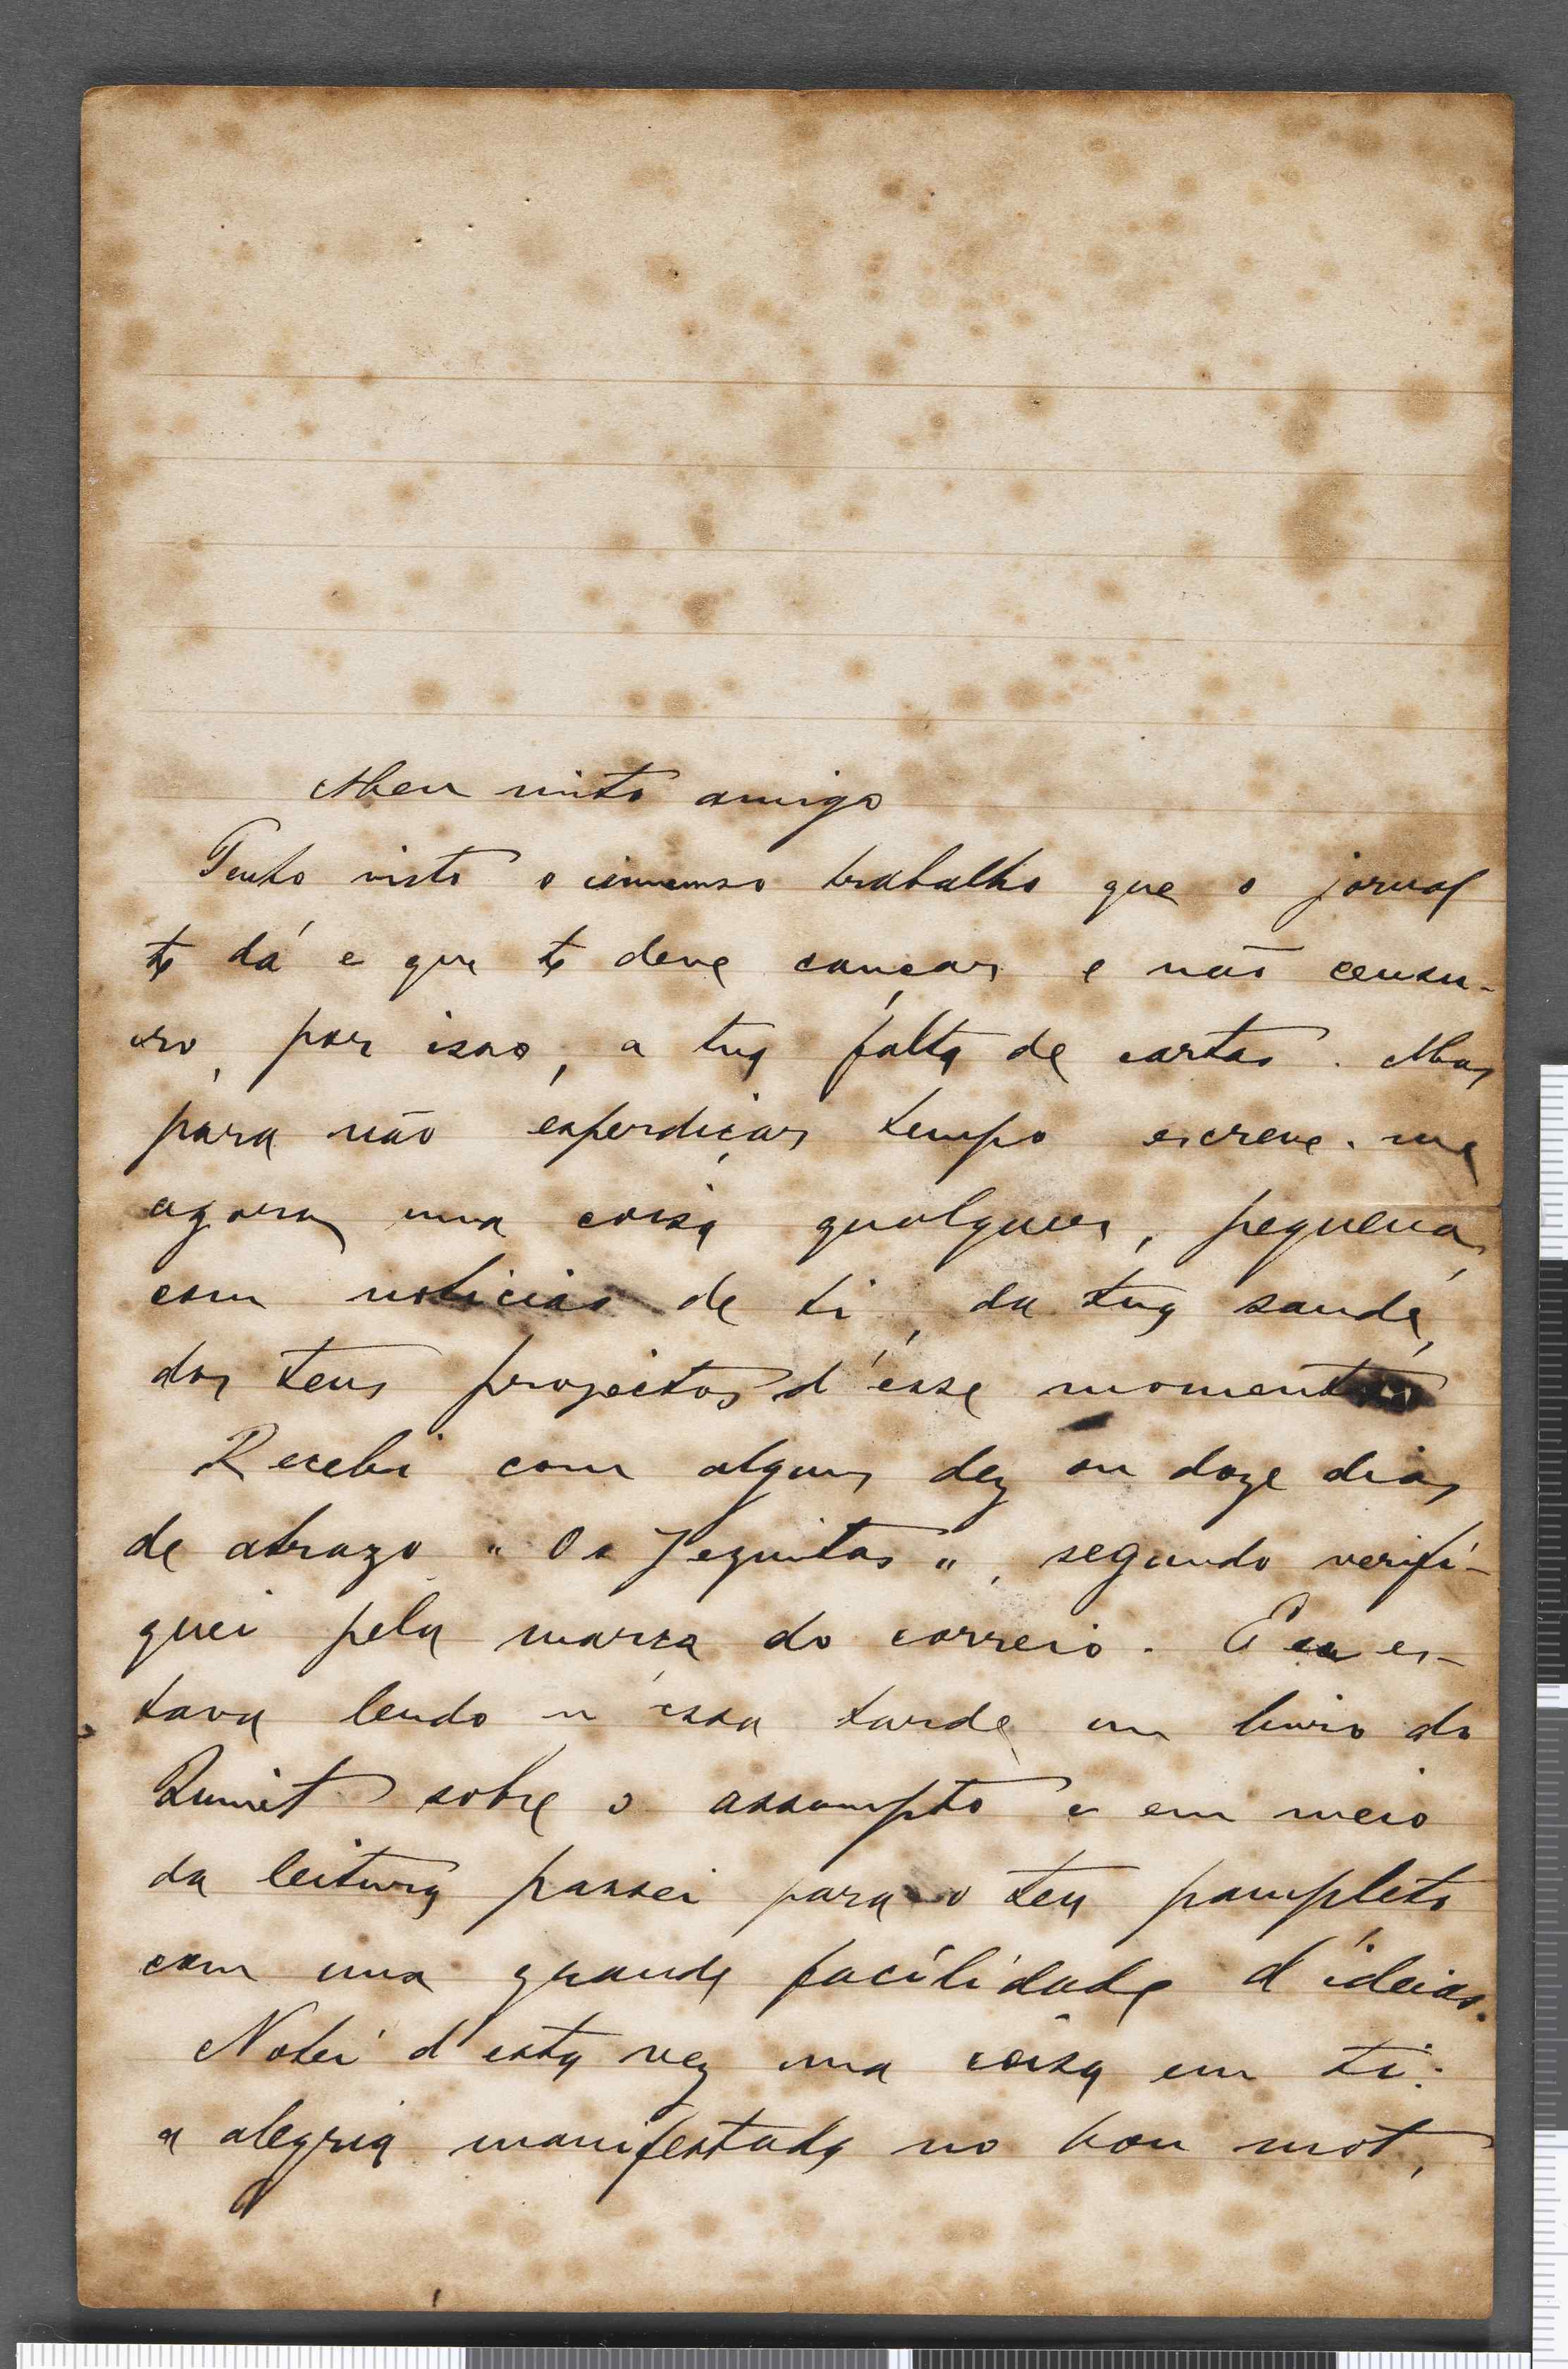 Meu muito amigo
Tenho visto o immenso trabalho que o jornal
te dá e que te deve cançar e não censu-
ro, por isso, a tua falta de cartas. Mas
para não esperdiçar tempo escreve-me
agora uma coisa qualquer, pequena,
com noticias de ti, da tua saude,
dos teus projectos d'esse momento
Recebi com alguns dez ou doze dias
de atrazo "Os Jezuitas", segundo verifi-
quei pela marca do correio. Eu es-
tava lendo n'essa tarde um livro do
sobre o assumpto e em meio
da leitura passei para o teu pampleto
com uma grande facilidade d'ideias.
Notei d'esta vez uma coisa em ti:
a alegria manifestada no bon mot,